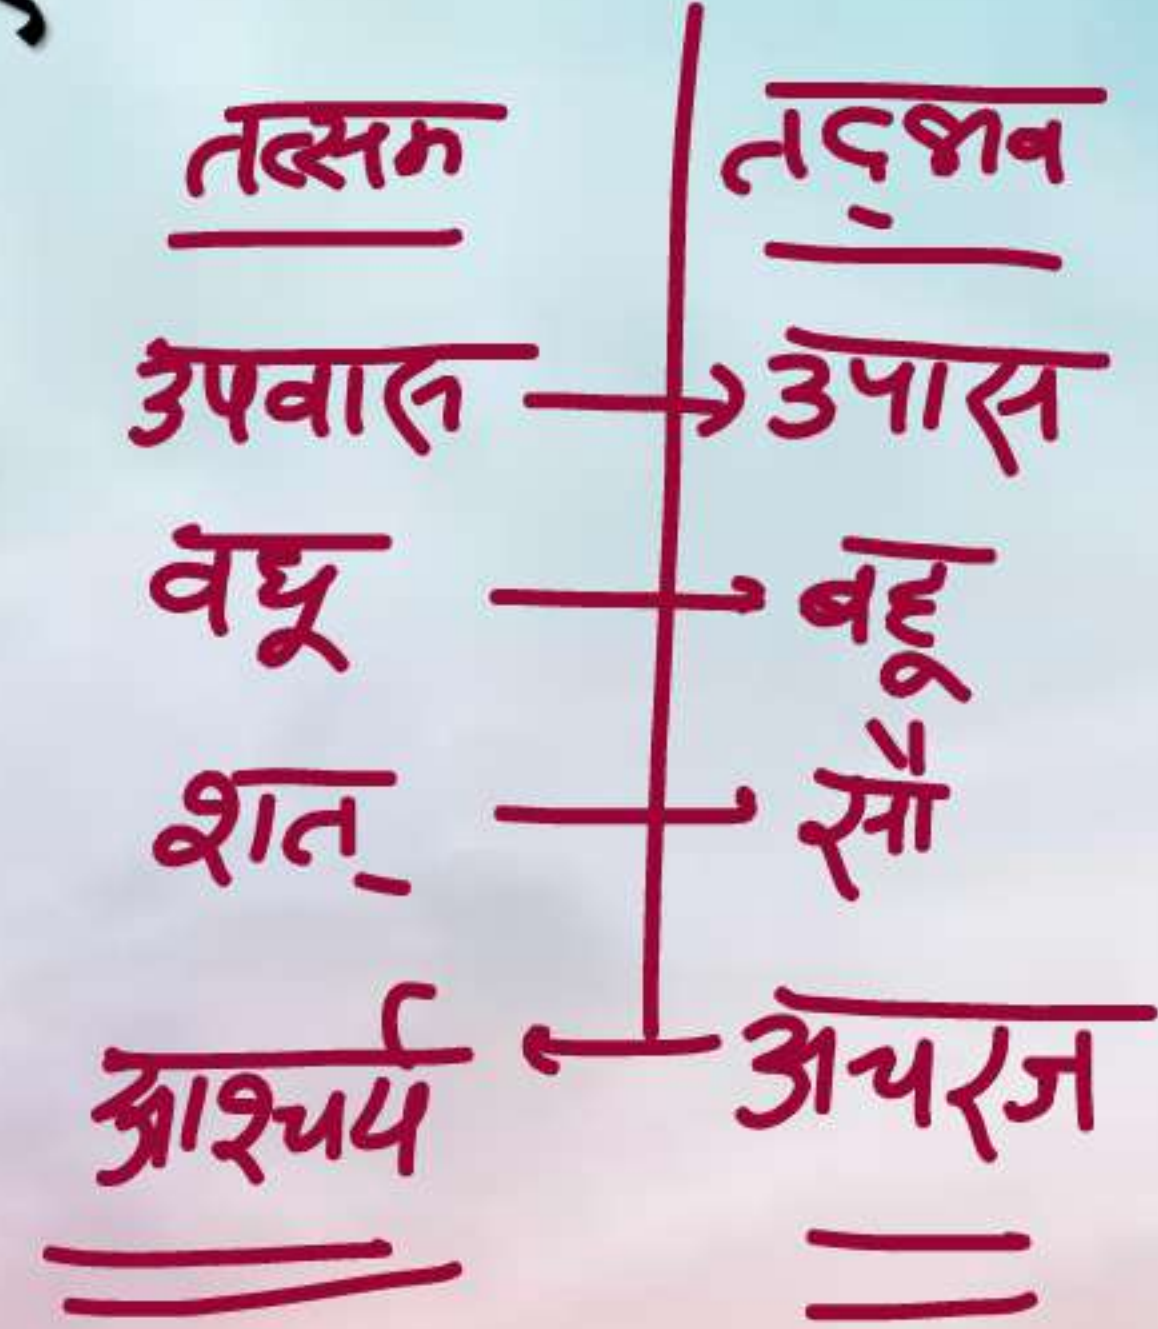 तत्सम तद्भाव
उपवास → उपास
वधू → बहू
शत् → सौ
आश्चर्य ← अचरज